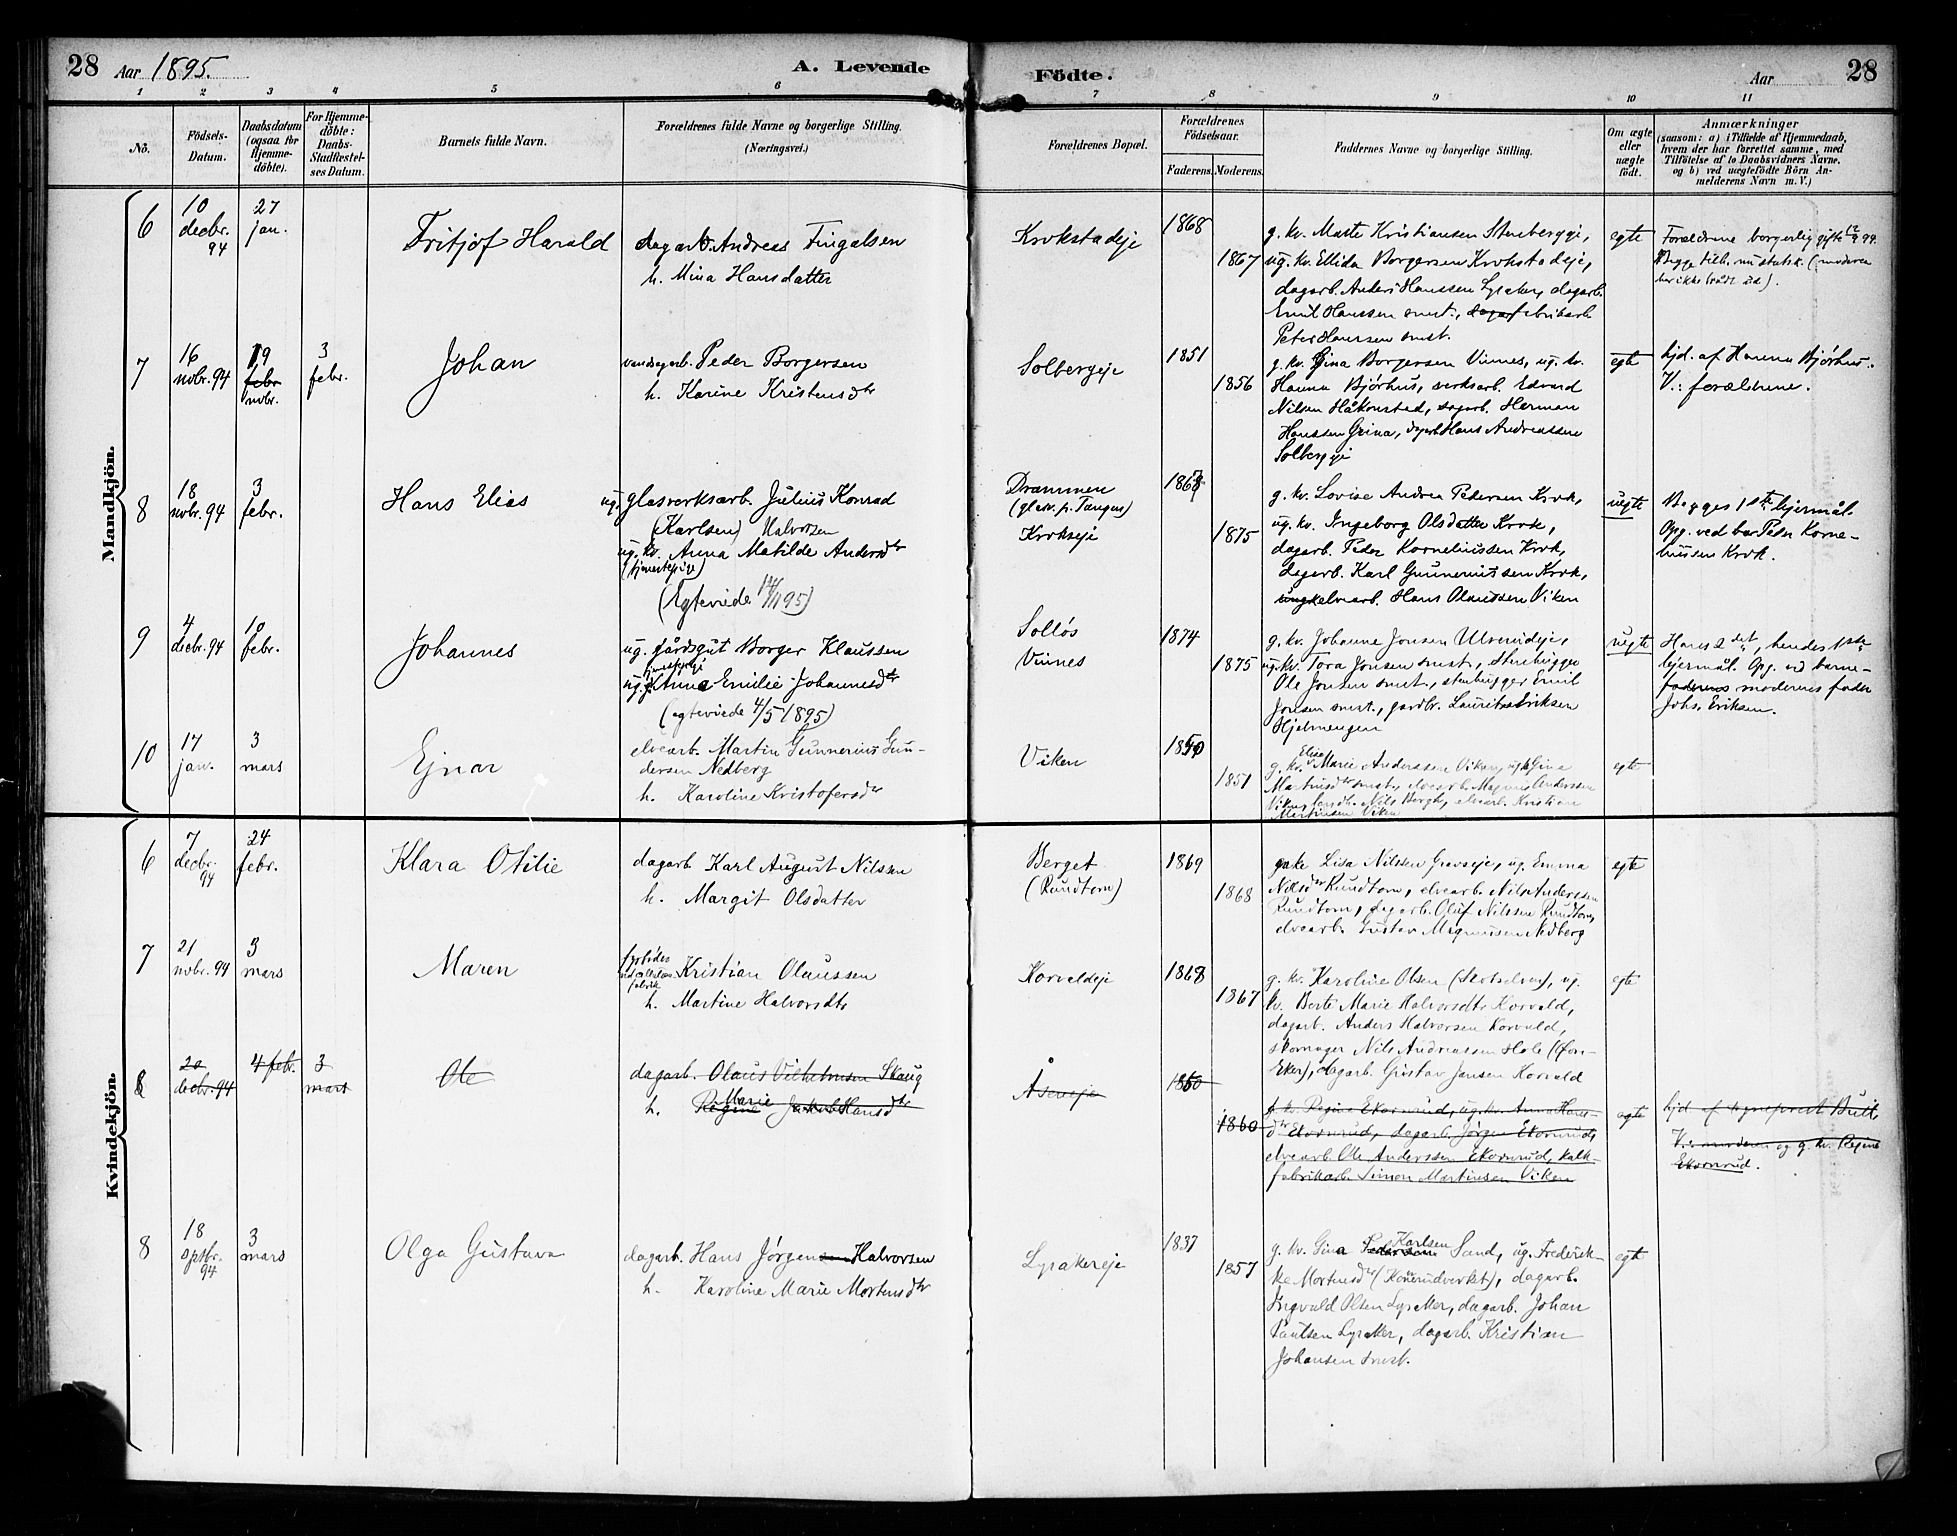 28 Aar 1895. A. Levende Födte. Aar 28
1 2 3 4 5 6 7 8 9 10 11
No.
Födsels-
Datum.
Daabsdatum
(ogsaa for
Hjemme-
döbte).
For Hjemme-
döbte:
Daabs-
Stadfæstel-
ses Datum.
Barnets fulde Navn.
Forældrenes fulde Navne og borgerlige Stilling.
(Næringsvei.)
Forældrenes Bopæl.
Forældrenes
Födselsaar.
Faderens. Moderens.
Faddernes Navne og borgerlige Stilling.
Om ægte
eller
uægte
födt.
Anmærkninger
(saasom: a) i Tilfælde af Hjemmedaab,
hvem der har forrettet samme, med
Tilföielse af to Daabsvidners Navne.
og b) ved uægtefödte Börn An-
melderens Navn m. V.)
Mandkjön.
6
10
decbr.
94
27
jan.
Fritjof Harald
dagarb. Andreas Fingalsen
h. Mina Hansdatter
Krokstadeje
1868
1867
g. kv. Marte Kristiansen Stenbergeje,
ug. kv. Ellida Borgersen Krokstadeje,
dagarb. Anders Hanssen Lyraker, dagarb.
Emil Hanssen smst., dagar fabrikarb.
Peter Hanssen smst.
egte
Forældrene borgerlig gifte
Begge tilh. m statsk. (moderen
har ikke trådt ud).
7
16
novbr. 94
19
febr
novbr.
3
febr.
Johan
Peder Borgersen
h. Karine Kristensdtr
Solbergeje
1851
1856
g. kv. Gina Borgersen Vinnes, ug. kv.
Hanna Bjørhus, verksarb. Edvard
Nilsen Håkonstad, dagarb. Herman
Hanssen Grina, dagarb Hans Andreassen
Solbergeje
egte
hjd. af Hanna Bjørhus.
V.: forældrene.
8
18
novbr. 94
3
febr.
Hans Elias
ug. glasverksarb. Julius Konrad
(Karlsen) Halvorsen
ug. kv. Anna Matilde Andersdtr
(tjenestepige)
(Egteviede 1895)
Drammen
(glasv. p. Tangen)
Krokseje
1875
g. kv. Lovise Andrea Pedersen Krok,
ug. kv. Ingeborg Olsdatter Krok,
dagarb. Peder Kornelinssen Krok,
dagarb. Karl Gunneriussen Krok,
ungk elvearb. Hans Olaussen Viken
uegte
Begges 1ste lejermål.
Opg. ved bar Peder Korne-
liussen Krok.
9
4
decbr. 94
10
febr.
Johannes
ug. gårdsgut Borger Klaussen
ug. Anna Emilie Johannesdtr
(egteviede 4/5 1895)
Solløs
Vinnes
1874
1875
g. kv. Johanne Jonsen Ulverudeje,
ug. kv. Tora Jonsen smst., stenhugger
Ole Jonsen smst., stenhugger Emil
Jonsen smst., gardbr. Laurits Eriksen
Hjelmengen
uegte
Hans 2det, hendes 1ste
lejermål. Opg. ved barne-
faderens moderens fader
Johs. Eriksen.
10
17
jan.
3
mars
Ejnar
elvearb. Martin Gunnerius Gun-
dersen Nedberg
h. Karoline Kristofersdtr
Viken
1851
Elise
g. kv. Marie Anderssen Viken, ug. k Gina
Martinsdtr smst., elvearb. Magnus Anderssen
Viken, landh. Nils Bergh, elvearb. Kristian
Martinsen Viken
egte
Kvindekjön.
6
7
decbr.
94
24
febr.
Klara Otilie
dagarb. Karl August Nilsen
h. Margit Olsdatter
Berget
(Rundtom)
1869
1868
enke Lisa Nilssen Gravseje, ug. Emma
Nilsdtr Rundtom, elvearb. Nils Anderssen
Rundtom, dagarb. Oluf Nilssen Rundtom,
elvearb. Gustav Magnussen Nedberg
egte
7
21
novbr. 94
3
mars
Maren
fyrbøder
Kristian Olaussen
h. Martine Halvorsdtr
Korvaldeje
1868
1867
g. kv. Karoline Olsen (Skotselven), ug.
kv. Berte Marie Halvorsdtr Korvald,
dagarb. Anders Halvorsen Korvald,
skomager Nils Andreassen Hole (Øvr-
Eker), dagarb. Gustav Jansen Korvald
egte
8
20
decbr. 94
4 febr.
3
mars
Ole
dagarb. Olaus Vilhelmsen Skaug
Marie
h. Regine Jakob Hansdtr
Åserueje
1860
1860
g. kv. Regine Ekornrud, ug. kv. Anna Hans-
dtr Ekornrud, dagarb. Jørgen Ekornrud,
elvearb. Ole Anderssen Ekornrud, kalk-
fabrikarb. Simon Martinsen Viken
egte
hjd. af sogneprest Bull
V.: moderen og g. kv. Regine
Ekornrud.
8
18
sptbr.
94
3
mars
Olga Gustava
dagarb. Hans Jørgensen Halvorsen
h. Karoline Marie Mortensdtr
Lyrakereje
1837
1857
Karlsen
g. kv. Gina Pedersen Sand, ug. Frederik-
ke Mortensdtr (Konerudverket), dagarb.
Ingvald Olsen Lyraker, dagarb. Johan
Paulsen Lyraker, dagarb. Kristian
Johansen smst.
egte